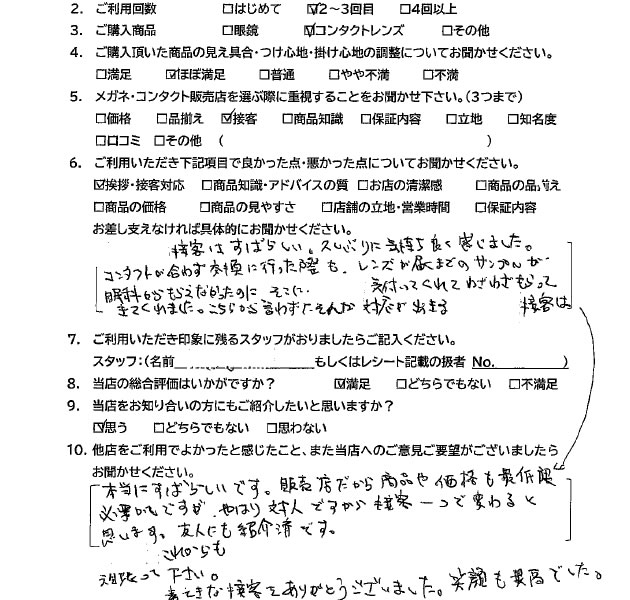 2. ご利用回数 □はじめて ☑2～3回目 □4回以上
3. ご購入商品 □眼鏡 ☑コンタクトレンズ □その他
4. ご購入頂いた商品の見え具合・つけ心地・掛け心地の調整についてお聞かせください。
□満足 ☑ほぼ満足 □普通 □やや不満 □不満
5. メガネ・コンタクト販売店を選ぶ際に重視することをお聞かせ下さい。(3つまで)
□価格 □品揃え ☑接客 □商品知識 □保証内容 □立地 □知名度
□口コミ □その他 ( )
6. ご利用いただき下記項目で良かった点・悪かった点についてお聞かせください。
☑挨拶・接客対応 □商品知識・アドバイスの質 □お店の清潔感 □商品の品揃え
□商品の価格 □商品の見やすさ □店舗の立地・営業時間 □保証内容
お差し支えなければ具体的にお聞かせください。
接客はすばらしい。久しぶりに気持ち良く感じました。
コンタクトが合わず交換に行った際も、レンズが届くまでのサンプルが
眼科からもらえなかったのに そこに 気付ってくれてわざわざもらって
きてくれました。こちらから言わずにそんな対応が出来る 接客は
7. ご利用いただき印象に残るスタッフがおりましたらご記入ください。
スタッフ:(名前 もしくはレシート記載の扱者 No. )
8. 当店の総合評価はいかがですか? ☑満足 □どちらでもない □不満足
9. 当店をお知り合いの方にもご紹介したいと思いますか?
☑思う □どちらでもない □思わない
10. 他店をご利用でよかったと感じたこと、また当店へのご意見ご要望がございましたら
お聞かせください。
本当にすばらしいです。販売店だから商品や価格も最低限
必要かもですが やはり対人ですから接客一つで変わると
思います。友人にも紹介済です。
これからも
頑張って下さい。
素てきな接客をありがとうございました。笑顔も最高でした。